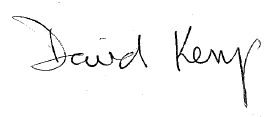 David Kemp